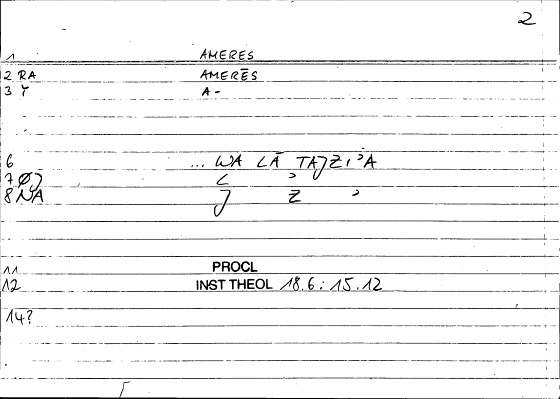 2
1 AMERES
2 RA AMERĒS
3 A-
6 ... WA LĀ TAJZI'A
7 ØJ L '
8 NA J Z '
11 PROCL
12 INST THEOL 18.6 : 15.12
14?